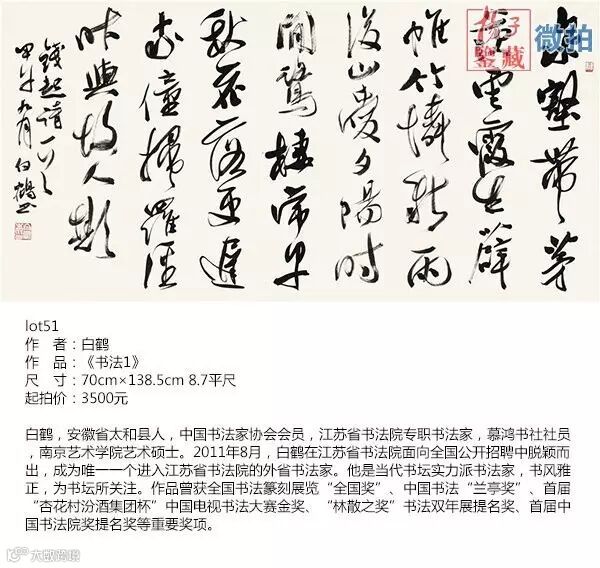 泉壑帶茅
茨雲霞生薜
帷竹憐新雨
後山愛夕陽時
閒鷺棲常早
秋花落更遲
家僮掃蘿徑
昨與故人期
錢起詩一
甲午月白鶴
揚子鑒藏
微拍
lot51
作 者：白鹤
作 品：《书法1》
尺 寸：70cm×138.5cm 8.7平尺
起拍价：3500元
白鹤，安徽省太和县人，中国书法家协会会员，江苏省书法院专职书法家，慕鸿书社社员
，南京艺术学院艺术硕士。2011年8月，白鹤在江苏省书法院面向全国公开招聘中脱颖而
出，成为唯一一个进入江苏省书法院的外省书法家。他是当代书坛实力派书法家，书风雅
正，为书坛所关注。作品曾获全国书法篆刻展览“全国奖”、中国书法“兰亭奖”、首届
“杏花村汾酒集团杯”中国电视书法大赛金奖、“林散之奖”书法双年展提名奖、首届中
国书法院奖提名奖等重要奖项。